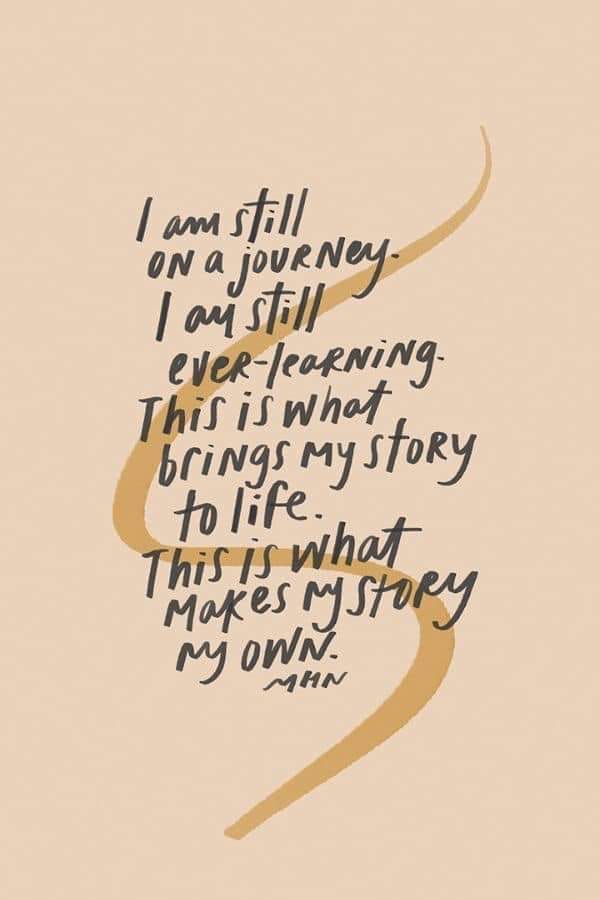 I am still
ON a jOURNey.
I am still
eveR-leaRNiNg.
This is what
briNgs My stoRy
to life.
This is what
Makes My stoRy
My OWN.
MHN